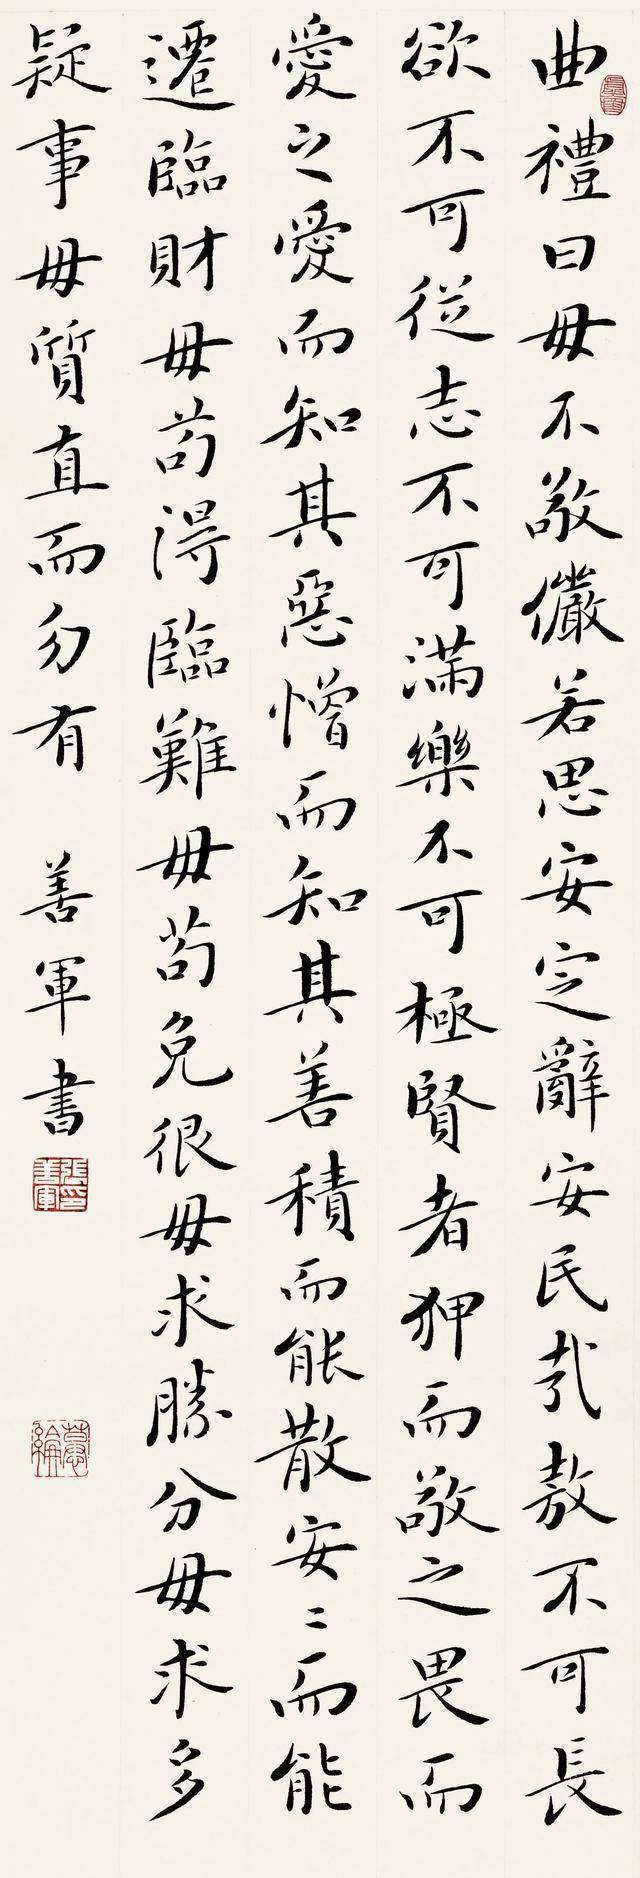 曲禮曰毋不敬儼若思安定辭安民哉敖不可長
欲不可從志不可滿樂不可極賢者狎而敬之畏而
愛之愛而知其惡憎而知其善積而能散安二而能
遷臨財毋苟得臨難毋苟免很毋求勝分毋求多
疑事毋質直而勿有 善軍書
張印善軍